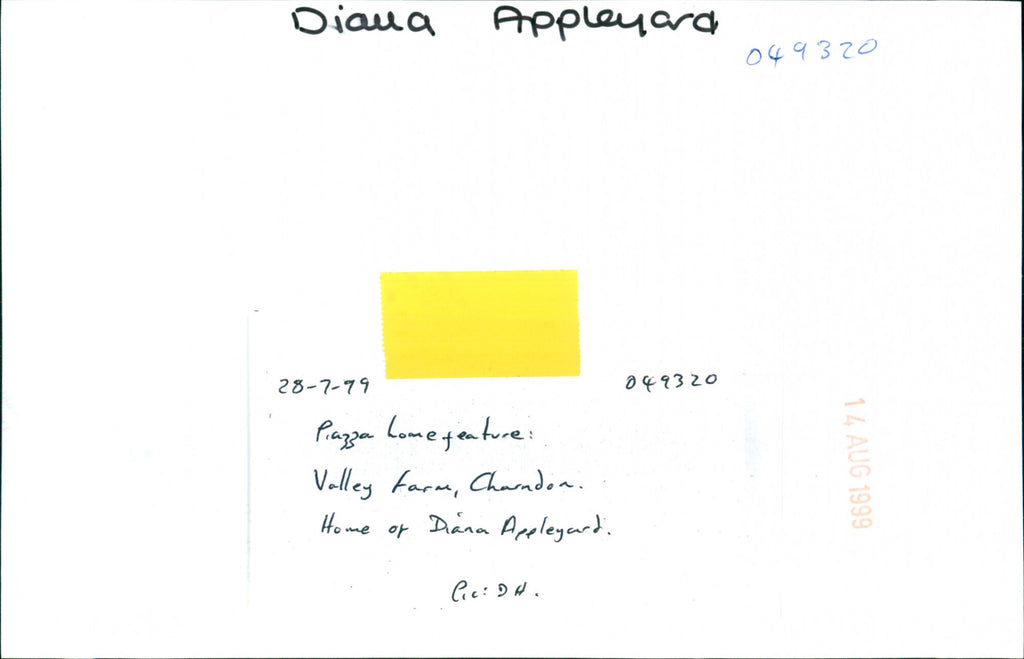 Diana Appleyard
049320
28-7-99 049320
Piazza home feature:
Valley Farm, Charndon.
Home of Diana Appleyard.
Pic: DH.
14 AUG 1999